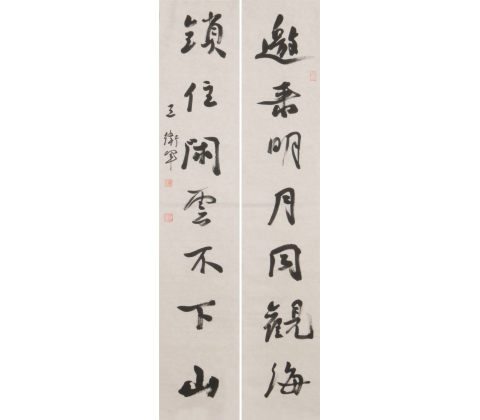 邀來明月同觀海
鎖住閑雲不下山
王衛軍